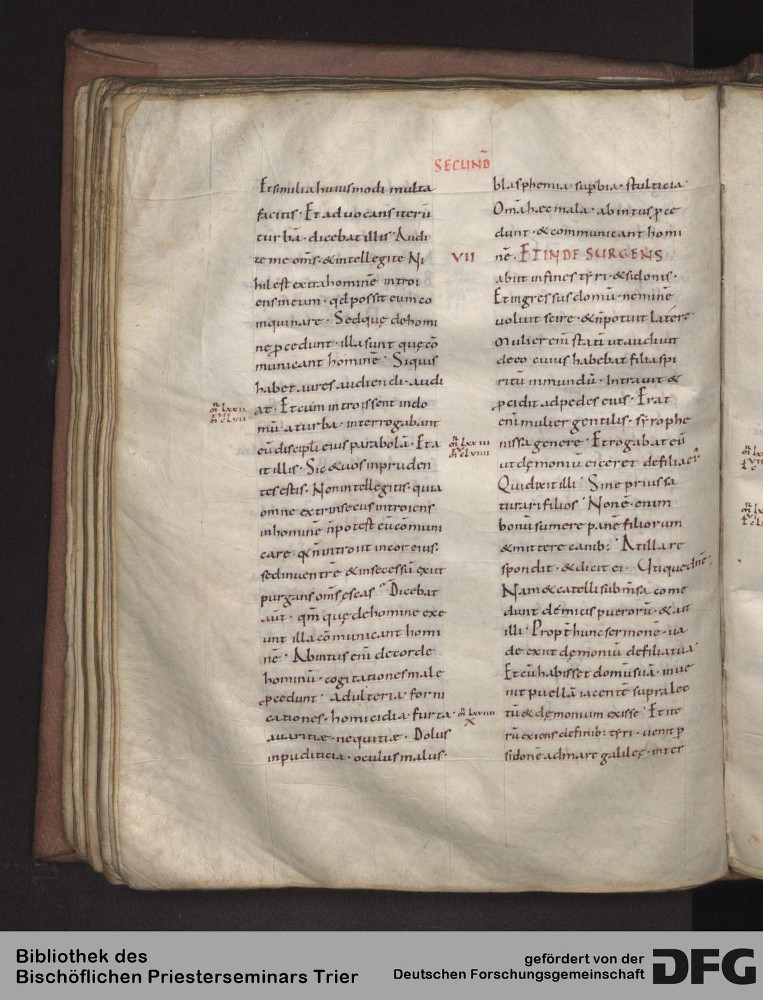 SECUND̄
Et similia huiusmodi multa
facitis · Et aduocans iterū
turbā · dicebat illis · Audi
te me om̄s · & intellegite Ni
hil est extra hominē introi
ens in eum · qd̄ possit eum co
inquinare · Sed quę de homi
nę ꝓcedunt · illa sunt quę cō
municant hominē · Siquis
habet aures audiendi · audi
at · Et cum introissent indo
mū a turba · interrogabant
eū discipĺi eius parabolā · Et a
it illis · Sic & uos inpruden
tes estis · Non intellegitis · quia
omne extrinsecus introiens
in hominē n̄ potest eū cōmuni
care · q̄n̄ introut in cor eius ·
sed inuentrē & insecessū exiit
purgans om̄s escas · Dicebat
aūt · qm̄ quę de homine exe
unt illa cōmunicant homi
nē · Abintus enī de corde
hominū · cogitationes male
ꝓcedunt · adulteria · forni
cationes · homicidia · furta ·
auaritiæ · nequitiæ · Dolus
inpudicicia · oculus malus ·
blasphemia · sup̄bia · stulticia ·
Om̄a hæc mala · abintus ꝓce
dunt · & communicant homi
VII
nē · ET INDE SURGENS
abiit in fines tẏri · & sidonis ·
Et ingressus domū · neminē
uoluit scire · & n̄ potuit latere ·
Mulier enī statī ut audiuit
de eo cuius habebat filia spi
ritū inmundū · Intrauit &
ꝓcidit ad pedes eius · Erat
enī mulier gentilis · sẏrophe
nissa genere · Et rogabat eū
ut dęmoniū eiceret de filia eiˀ
Qui dixit illi · Sine prius sa
turari filios · Non ē · enim
bonū sumere panē filiorum
& mittere canib: · At illa re
spondit · & dicit ei · Utique dn̄e ·
Nam & catelli sub m̄sa come
dunt de micis puerorū · & ait
illi · Propt̄ hunc sermonē · ua
de exiit dęmoniū de filia tua ·
Et cū habisset domū suā · inue
nit puellā iacentē supra lec
tū & dęmonium exisse · Et ite
rū exiens de finib: tẏri · uenit ꝑ
sidonē ad mare galileę · inter
Bibliothek des
Bischöflichen Priesterseminars Trier
gefördert von der
Deutschen Forschungsgemeinschaft
DFG